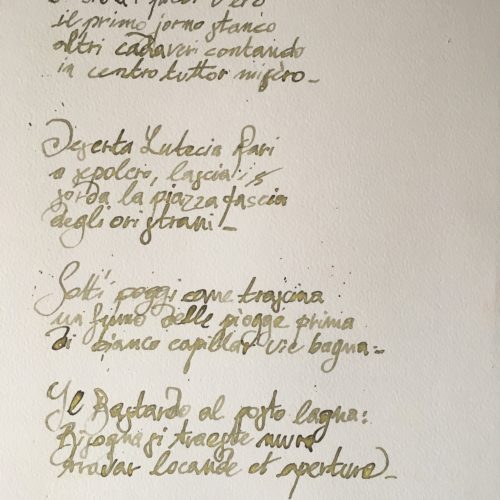 il primo jorno stanco
altri cadaveri contando
in centro tuttor misèro_
Deserta Lutecia Pari
o sepolcro, lascia
sorda la piazza fascia
degli ori strani!_
Sotti poggi come trascina
un fiume delle piogge prima
di bianco capillar vie bagna._
Il Bastardo al posto lagna:
Bisogna si traeste mura
trovar locande et apertura_